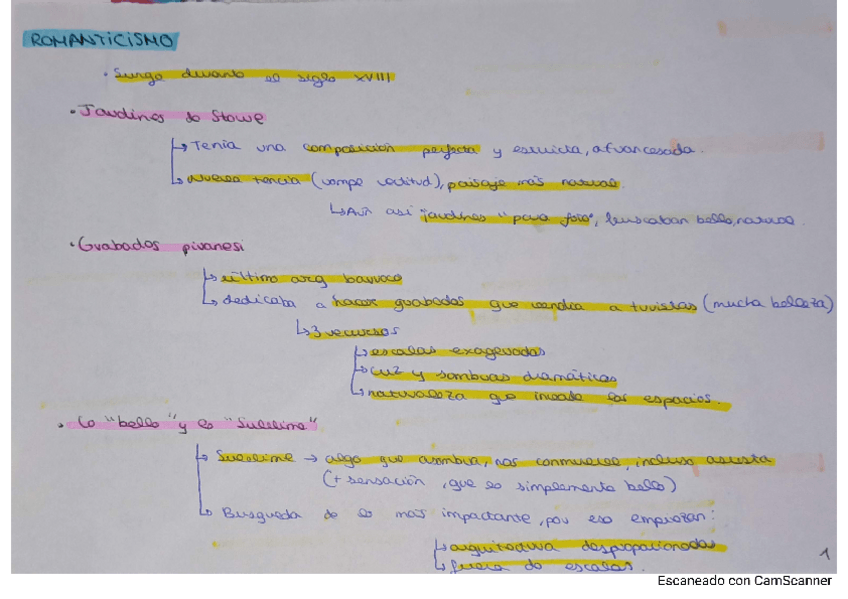 ROMANTICISMO
· Surge durante el siglo XVIII
· Jardines de Stowe
↳ Tenia una composición perfecta y estricta, afrancesada.
↳ nueva tencia (rompe rectitud), paisaje más natural.
↳ Aún asi jardines "para foto", buscaban bello, natural.
· Grabados piranesi
↳ último arq barroco
↳ dedicaba a hacer grabados que vendia a turistas (mucha belleza)
↳ 3 recursos
↳ escalas exageradas
↳ luz y sombras dramáticas
↳ naturaleza que invade los espacios.
· Lo "bello" y lo "Sublime"
↳ Sublime → algo que asombra, nos conmueve, incluso asusta
(+ sensación, que lo simplemente bello)
↳ Busqueda de lo más impactante, por eso empiezan:
↳ arquitectura desproporcionada
↳ fuera de escalas.
1
Escaneado con CamScanner